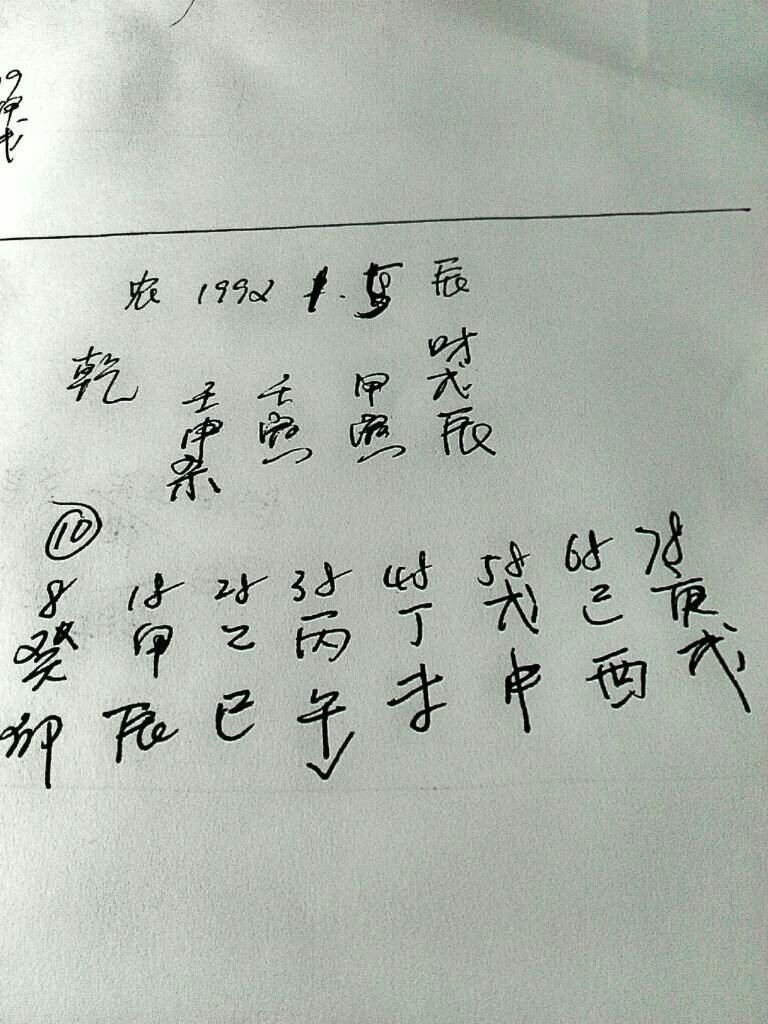 农 1992 1. 5 辰
财
乾 壬 壬 甲 戊
申 寅 寅 辰
杀
10
8 18 28 38 48 58 68 78
癸 甲 乙 丙 丁 戊 己 庚
卯 辰 巳 午 未 申 酉 戌